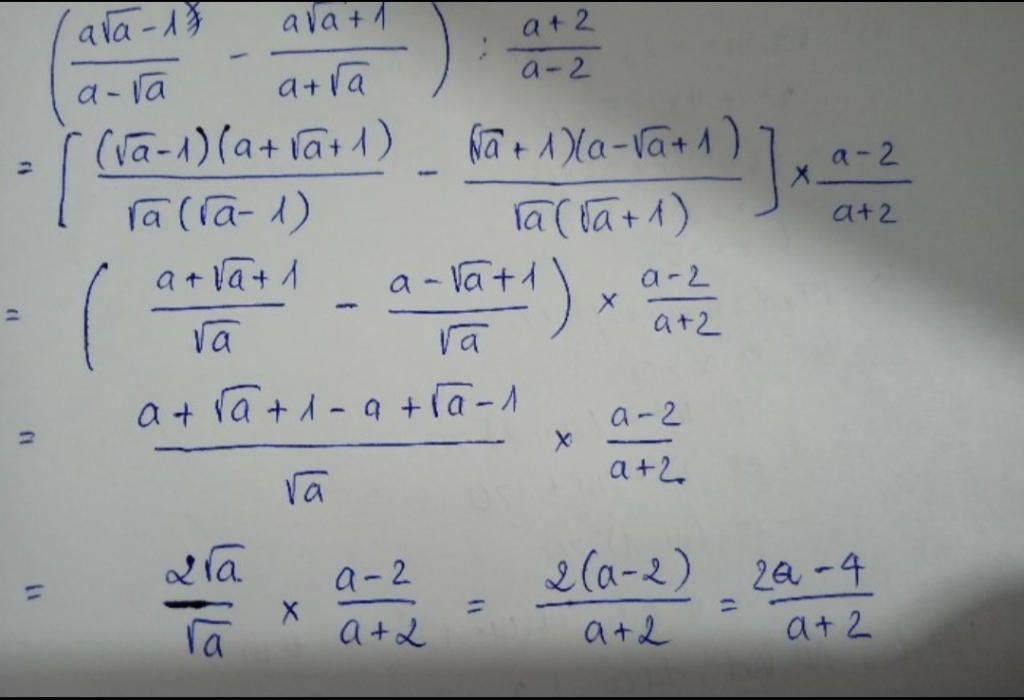 (a√a - 1 / a - √a - a√a + 1 / a + √a) : a + 2 / a - 2
= [(√a - 1)(a + √a + 1) / √a(√a - 1) - (√a + 1)(a - √a + 1) / √a(√a + 1)] × a - 2 / a + 2
= (a + √a + 1 / √a - a - √a + 1 / √a) × a - 2 / a + 2
= a + √a + 1 - a + √a - 1 / √a × a - 2 / a + 2
= 2√a / √a × a - 2 / a + 2 = 2(a - 2) / a + 2 = 2a - 4 / a + 2